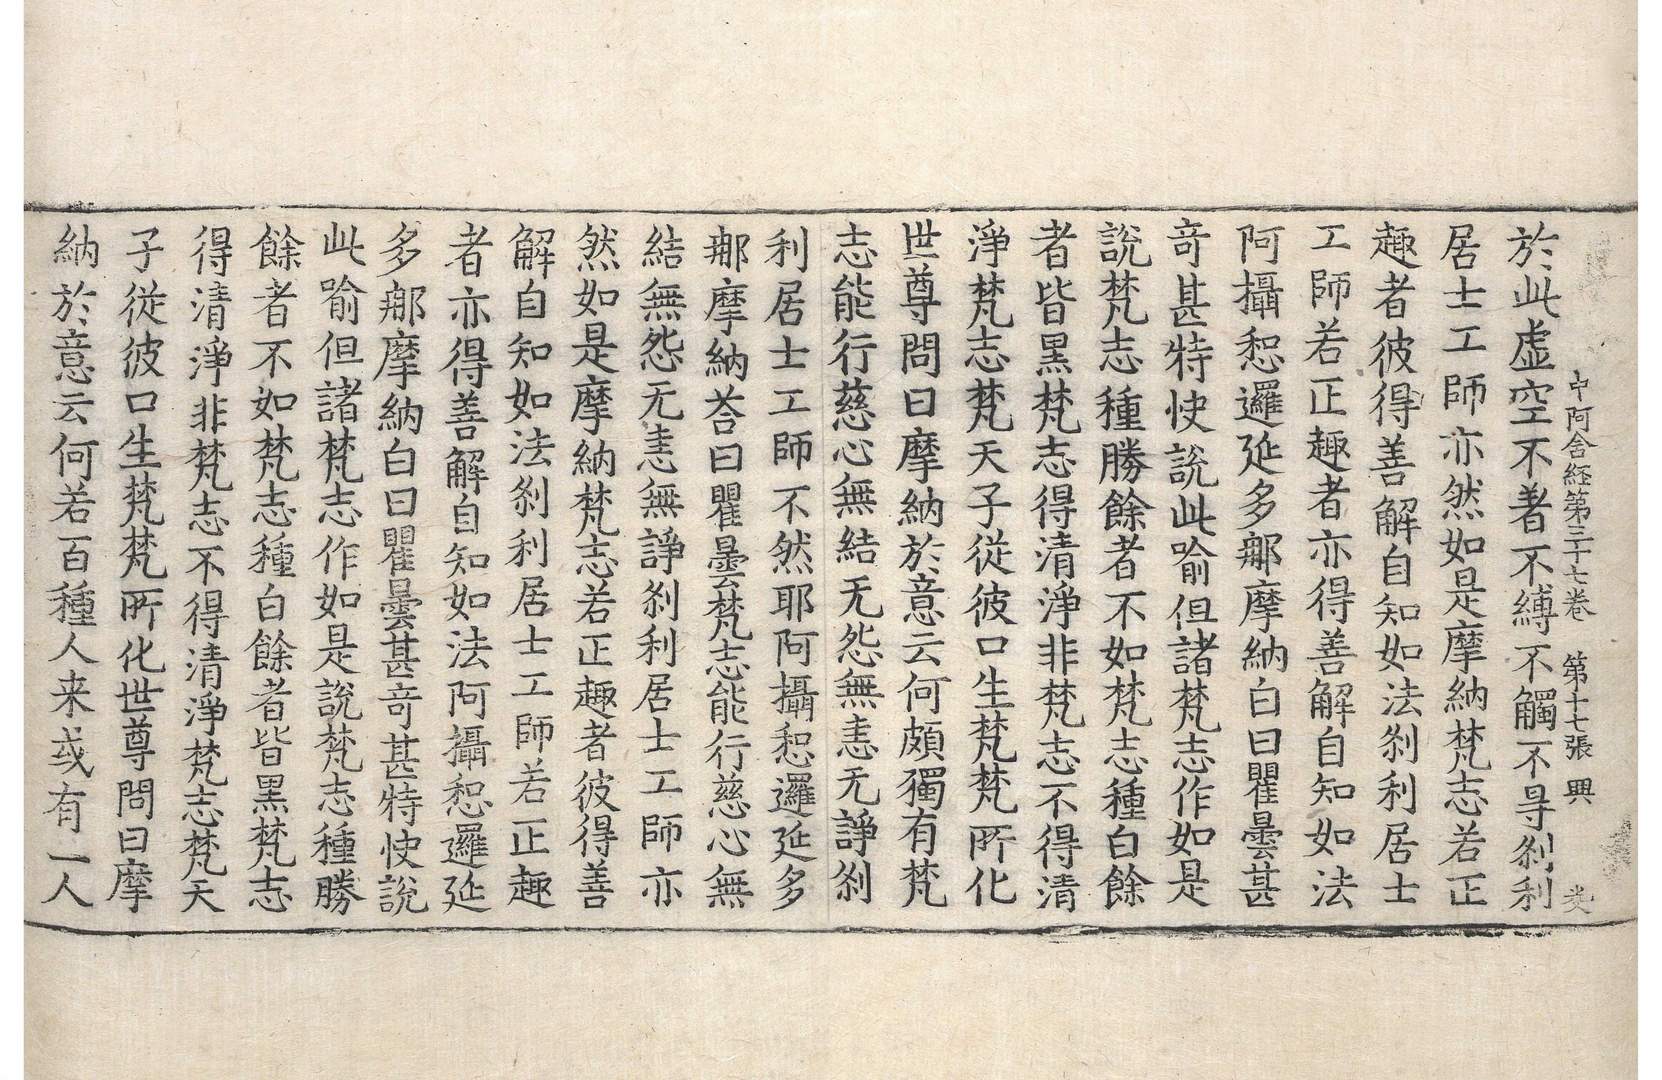 中阿含経第三十七巻 第十七張 興
於此虚空不著不縛不觸不㝵刹利
居士工師亦然如是摩納梵志若正
趣者彼得善解自知如法刹利居士
工師若正趣者亦得善解自知如法
阿攝惒邏延多𨚗摩納白曰瞿曇甚
竒甚特快說此喻但諸梵志作如是
說梵志種勝餘者不如梵志種白餘
者皆黑梵志得清淨非梵志不得清
淨梵志梵天子從彼口生梵梵所化
世尊問曰摩納於意云何頗獨有梵
志能行慈心無結无怨無恚无諍刹
利居士工師不然耶阿攝惒邏延多
𨚗摩納荅曰瞿曇梵志能行慈心無
結無怨无恚無諍刹利居士工師亦
然如是摩納梵志若正趣者彼得善
解自知如法刹利居士工師若正趣
者亦得善解自知如法阿攝惒邏延
多𨚗摩納白曰瞿曇甚竒甚特快說
此喻但諸梵志作如是說梵志種勝
餘者不如梵志種白餘者皆黑梵志
得清淨非梵志不得清淨梵志梵天
子從彼口生梵梵所化世尊問曰摩
納於意云何若百種人来或有一人